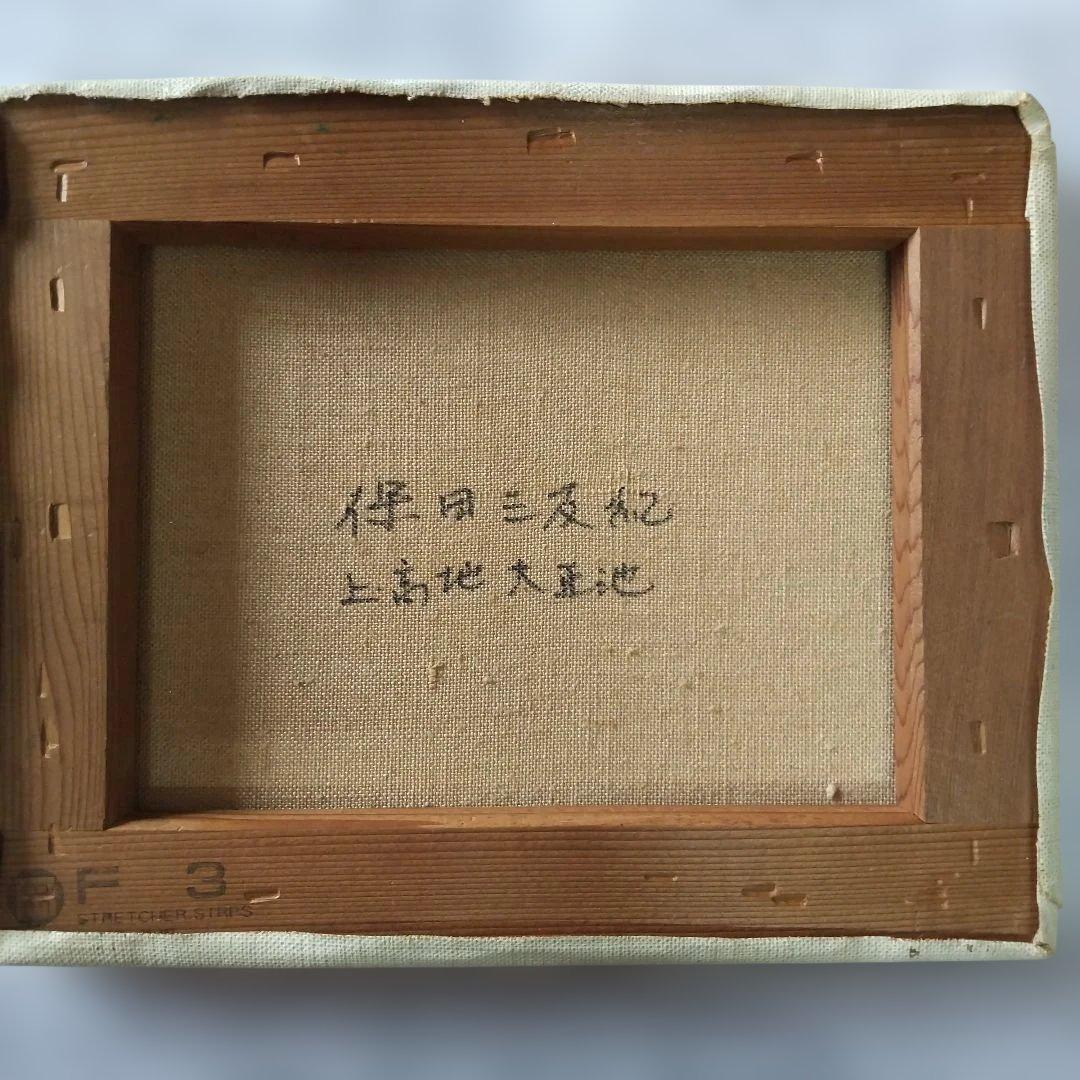 保田三友紀
上高地 大正池
F 3
STRETCHER.STRPS